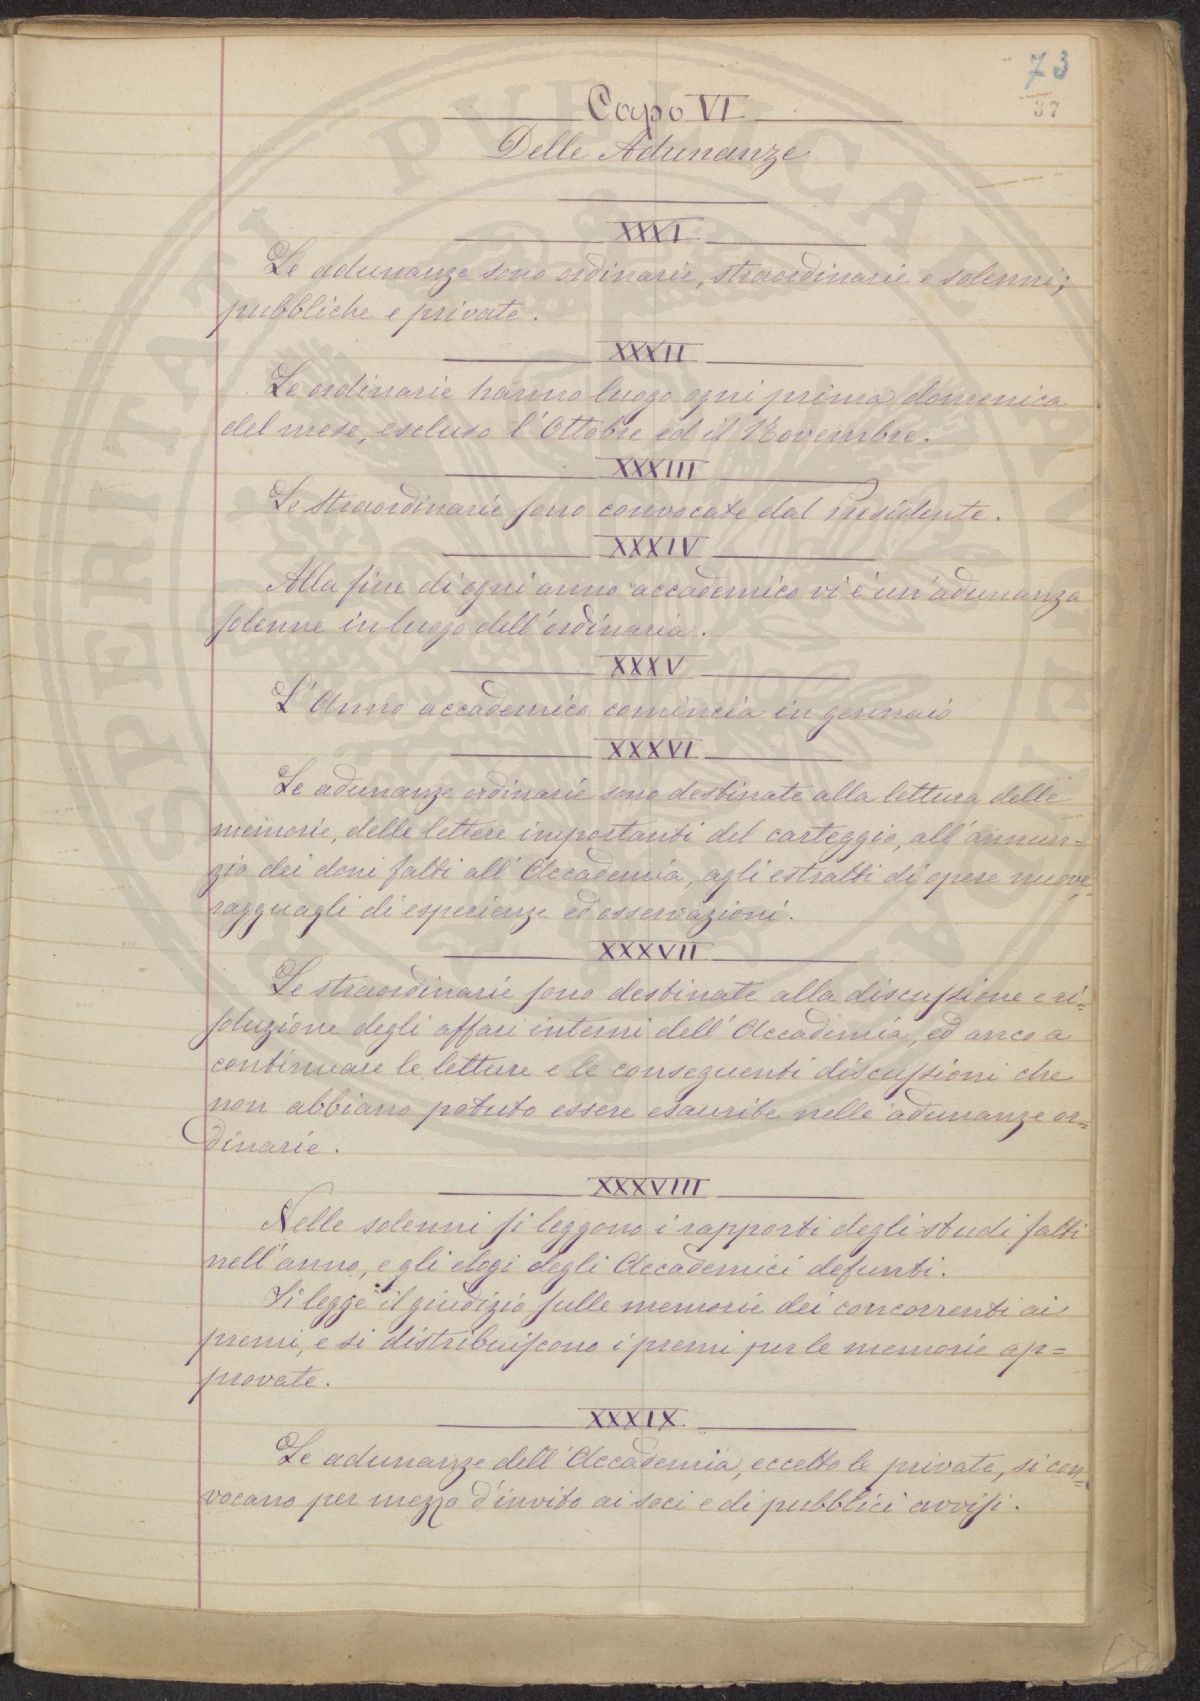 73
37
Capo VI
Delle Adunanze
XXXI
Le adunanze sono ordinarie, straordinarie e solenni;
pubbliche e private.
XXXII
Le ordinarie hanno luogo ogni prima domenica
del mese, escluso l'Ottobre ed il Novembre.
XXXIII
Le straordinarie sono convocate dal Presidente.
XXXIV
Alla fine di ogni anno accademico vi è un'adunanza
solenne in luogo dell'ordinaria.
XXXV
L'Anno accademico comincia in gennaio
XXXVI
Le adunanze ordinarie sono destinate alla lettura delle
memorie, delle lettere importanti del carteggio, all'annun=
zio dei doni fatti all'Accademia, agli estratti di opere nuove,
ragguagli di esperienze ed osservazioni.
XXXVII
Le straordinarie sono destinate alla discussione e ri=
soluzione degli affari interni dell'Accademia, ed anco a
continuare le letture e le conseguenti discussioni che
non abbiano potuto essere esaurite nelle adunanze or=
dinarie.
XXXVIII
Nelle solenni si leggono i rapporti degli studi fatti
nell'anno, e gli elogi degli Accademici defunti.
Si legge il giudizio sulle memorie dei concorrenti ai
premi, e si distribuiscono i premi per le memorie ap=
provate.
XXXIX
Le adunanze dell'Accademia, eccetto le private, si con=
vocano per mezzo d'invito ai soci e di pubblici avvisi.